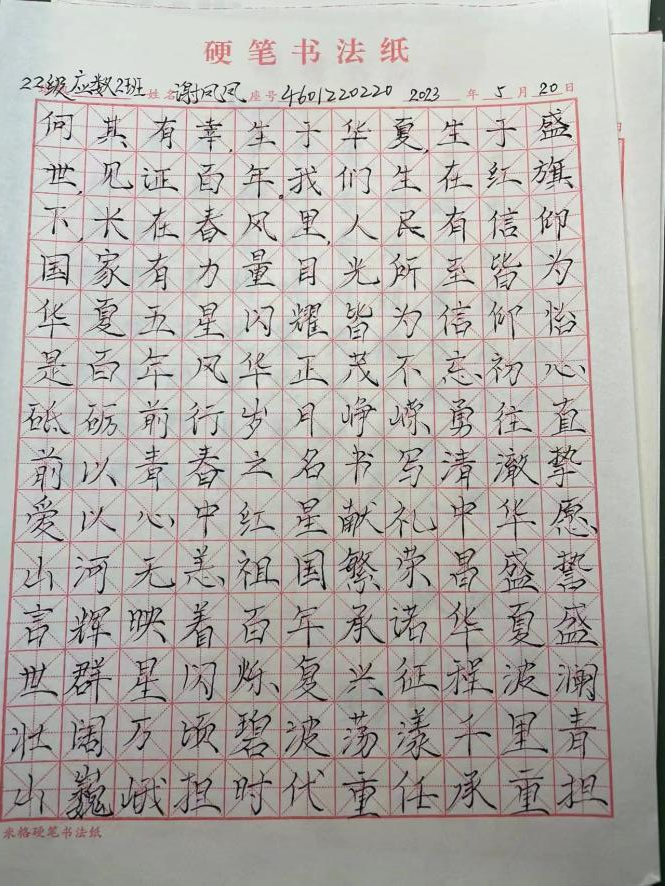 硬笔书法纸
22级应数2班 姓名 谢凤凤 座号 4601220220 2023 年 5 月 20 日
何其有幸,生于华夏,生于盛
世,见证百年。我们生在红旗
下,长在春风里,人民有信仰
国家有力量目光所至皆为
华夏五星闪耀皆为信仰恰
是百年风华正茂不忘初心
砥砺前行岁月峥嵘勇往直
前以青春之名书写清澈挚
爱以心中红星献礼中华愿
山河无恙祖国繁荣昌盛誓
言辉映着百年承诺华夏盛
世群星闪烁复兴征程波澜
壮阔万顷碧波荡漾千里青
山巍峨担时代重任承重担
米格硬笔书法纸